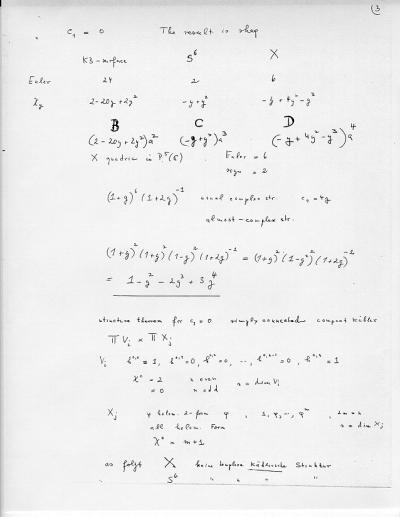 (3
c₁ = 0 The result is sharp
K3-surface S⁶ X
Euler 24 2 6
χ_y 2-20y+2y² -y+y² -y+4y²-y³
B C D
(2-20y+2y²)a² (-y+y²)a³ (-y+4y²-y³)a⁴
X quadric in P⁵(C) Euler = 6
sign = 2
(1+g)⁶ (1+2g)⁻¹ usual complex str. c₁ = 4g
almost-complex str.
(1+g)² (1+g²)² (1-g)² (1+2g)⁻¹ = (1+g²)² (1-g²)² (1+2g)⁻¹
= 1 - g² - 2g³ + 3g⁴
structure theorem for c₁=0 simply connected compact Kähler
∏ Vᵢ × ∏ Xⱼ
Vᵢ h⁰,⁰ = 1, h⁰,¹ = 0, h⁰,² = 0, .., hⁿ⁻¹,⁰ = 0, hⁿ,⁰ = 1
χ⁰ = 2 n even
= 0 n odd n = dim Vᵢ
Xⱼ holom. 2-form φ, 1, φ, .., φᵐ, 2m = n
all holom. Form n = dim Xⱼ
χ⁰ = m+1
es folgt X keine komplexe Kählersche Struktur
" S⁶ " " " "